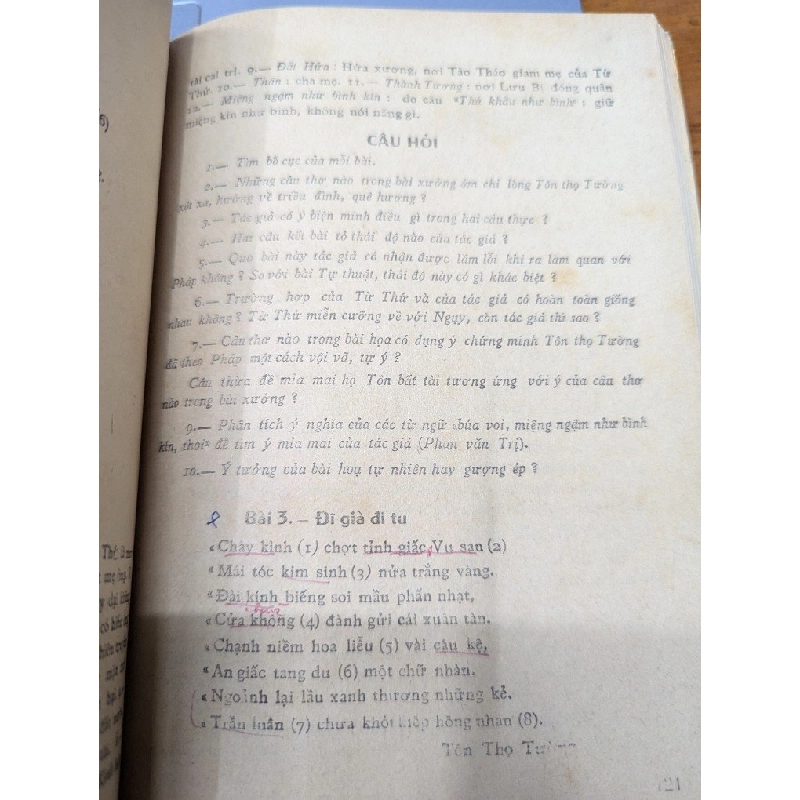 6)
tài cai trị. 9.— Đất Hứa : Hứa xương, nơi Tào Tháo giam mẹ của Từ
Thứ. 10.— Thân : cha mẹ. 11.— Thành Tương : nơi Lưu Bị đóng quân
12.— Miệng ngậm như bình kín : do câu "Thủ khẩu như bình" : giữ
miệng kín như bình, không nói năng gì.
CÂU HỎI
1.— Tìm bố cục của mỗi bài.
2.— Những câu thơ nào trong bài xướng ám chỉ lòng Tôn thọ Tường
xót xa, hướng về triều đình, quê hương ?
3.— Tác giả có ý biện minh điều gì trong hai câu thực ?
4.— Hai câu kết bài tỏ thái độ nào của tác giả ?
5.— Qua bài này tác giả có nhận được lầm lỗi khi ra làm quan với
Pháp không ? So với bài Tự thuật, thái độ này có gì khác biệt ?
6.— Trường hợp của Từ Thứ và của tác giả có hoàn toàn giống
nhau không ? Từ Thứ miễn cưỡng về với Ngụy, còn tác giả thì sao ?
7.— Câu thơ nào trong bài họa có dụng ý chứng minh Tôn thọ Tường
đã theo Pháp một cách vội vã, tự ý ?
Câu thừa đề mỉa mai họ Tôn bất tài tương ứng với ý của câu thơ
nào trong bài xướng ?
9.— Phân tích ý nghĩa của các từ ngữ «búa voi, miệng ngậm như bình
kín, thoi» để tìm ý mỉa mai của tác giả (Phan văn Trị).
10.— Ý tưởng của bài hoạ tự nhiên hay gượng ép ?
Bài 3. – Đĩ già đi tu
«Chày kình (1) chợt tỉnh giấc Vu san (2)
«Mái tóc kim sinh (3) nửa trắng vàng.
«Đài kính biếng soi mầu phấn nhạt,
«Cửa không (4) đành gửi cái xuân tàn.
«Chạnh niềm hoa liễu (5) vài câu kệ,
«An giấc tang du (6) một chữ nhàn.
«Ngoảnh lại lầu xanh thương những kẻ,
«Trần luân (7) chưa khỏi kiếp hồng nhan (8).
Tôn Thọ Tường
121